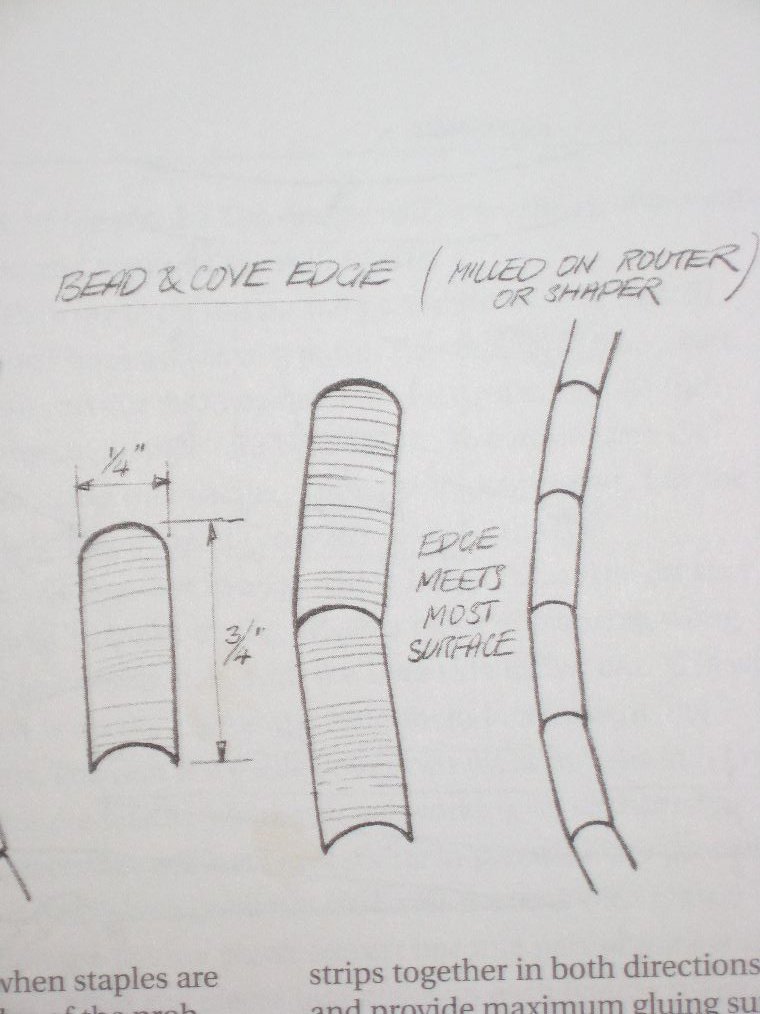 BEAD & COVE EDGE (MILLED ON ROUTER
OR SHAPER)
1/4"
3/4"
EDGE
MEETS
MOST
SURFACE
when staples are
strips together in both directions
of the prob-
and provide maximum gluing su